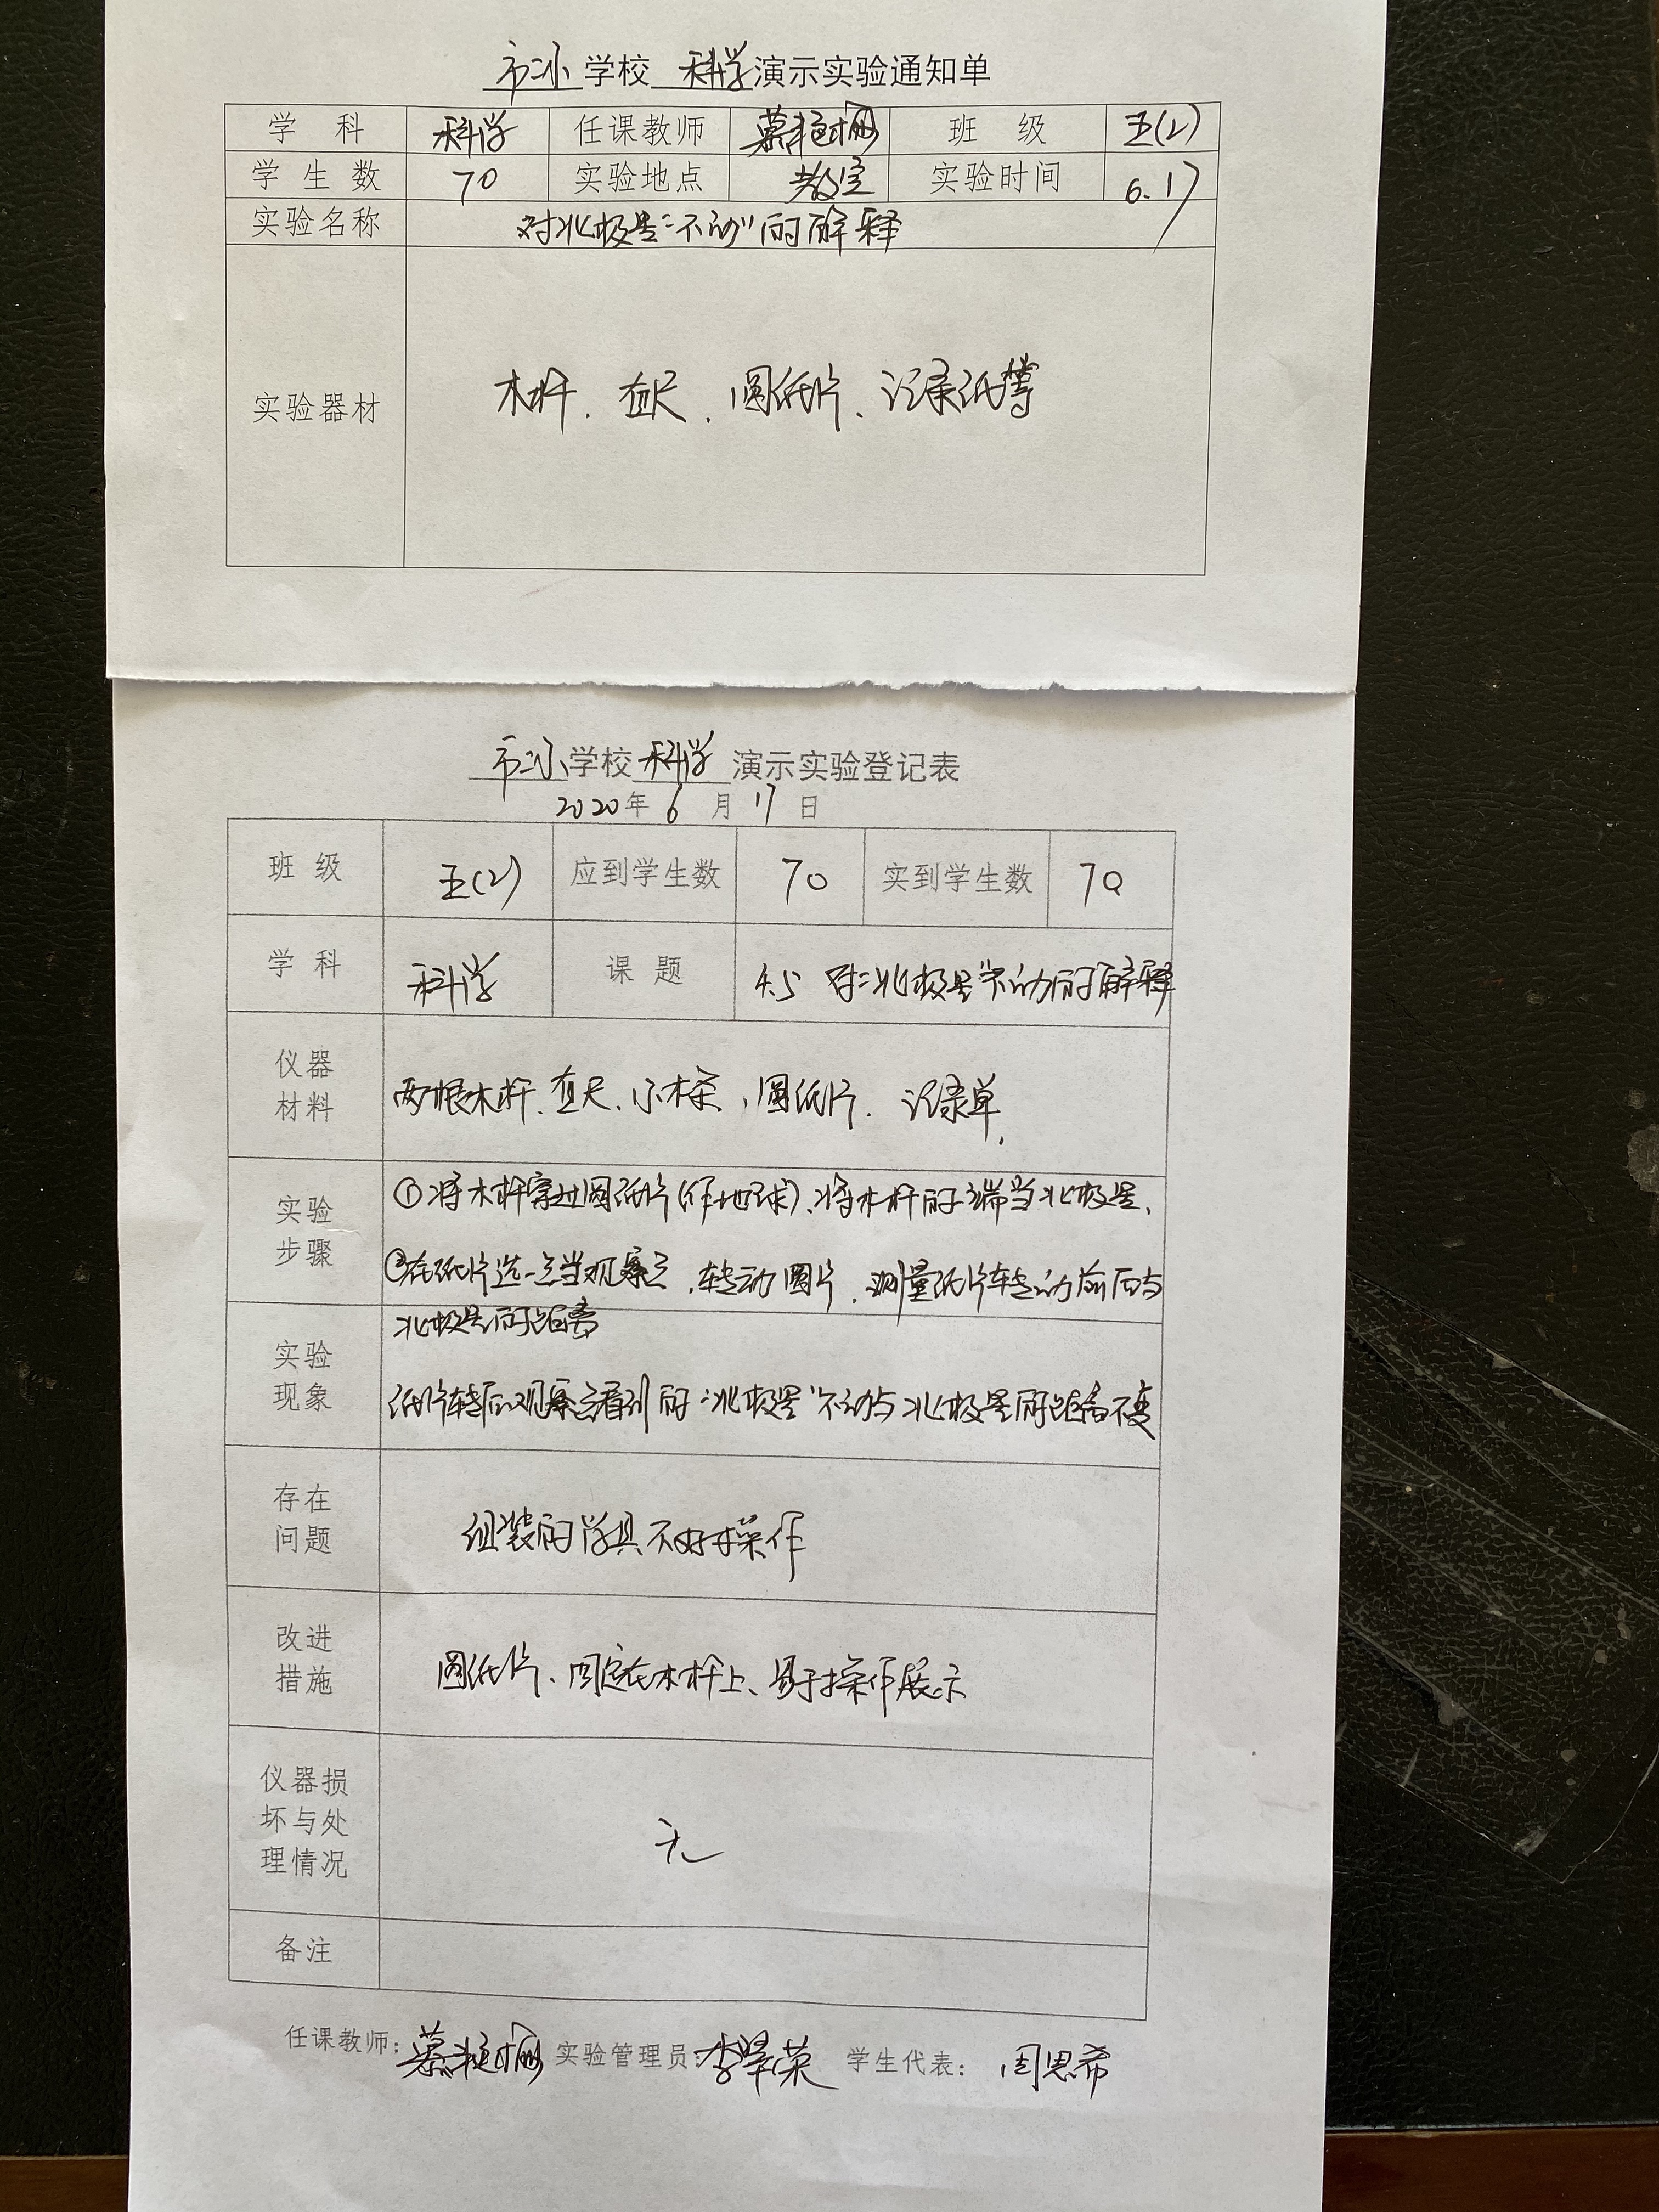 市二小学校 科学演示实验通知单
学 科 科学 任课教师 慕艳梅 班 级 五(2)
学 生 数 70 实验地点 教室 实验时间 6.17
实验名称 对北极星"不动"的解释
实验器材 木杆、直尺、圆纸片、记录纸等
市二小学校 科学 演示实验登记表
2020年 6 月 17 日
班 级 五(2) 应到学生数 70 实到学生数 70
学 科 科学 课 题 4.5 对"北极星"不动的解释
仪器
材料
两根木杆、直尺、小木条、圆纸片、记录单、
实验
步骤
①将木杆穿过圆纸片(作地球)、将木杆的一端当北极星、
②在纸片选一点当观察点、转动圆片、测量纸片转动前后与
北极星的距离
实验
现象
纸片转后观察点看到的"北极星"不动与北极星的距离不变
存在
问题
组装的学具不好操作
改进
措施
圆纸片、固定在木杆上、易于操作展示
仪器损
坏与处
理情况
无
备注
任课教师:慕艳梅 实验管理员:李翠荣 学生代表: 周思希